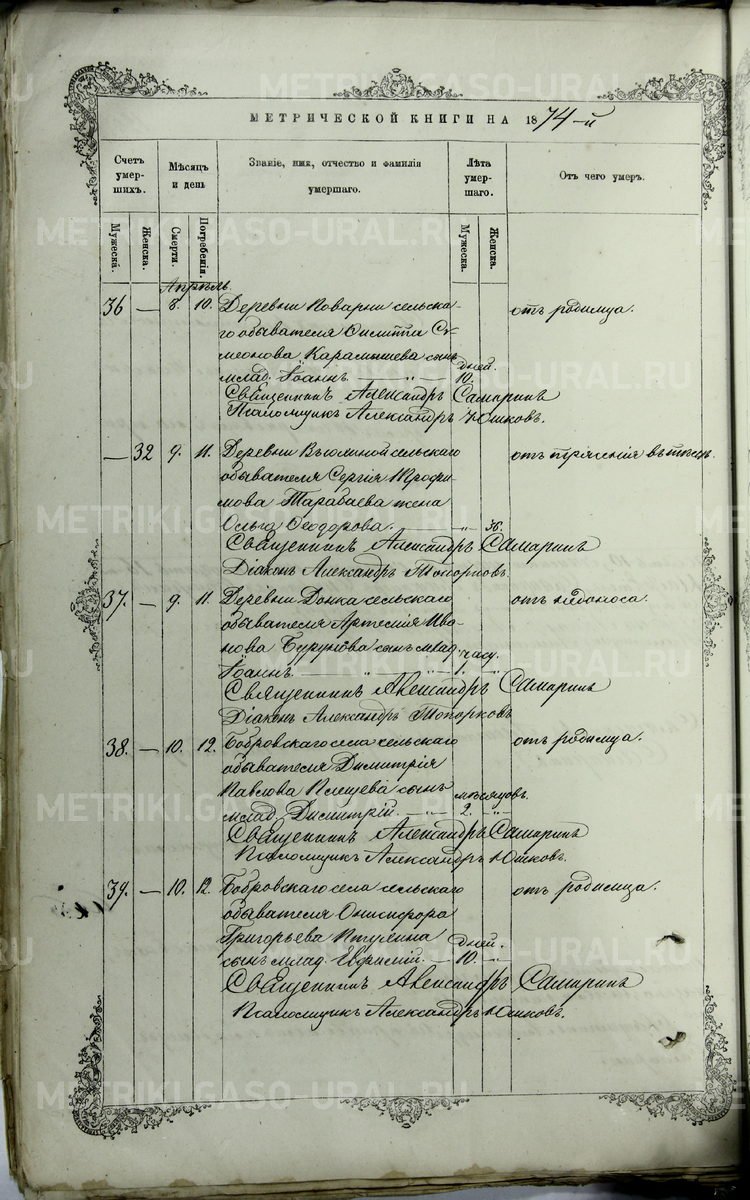 МЕТРИЧЕСКОЙ КНИГИ НА 1874-й
Счетъ умершихъ.
Мѣсяцъ и день
Званіе, имя, отчество и фамилія умершаго.
Лѣта умершаго.
Отъ чего умеръ.
Мужеска.
Женска.
Смерти.
Погребенія.
Мужеска.
Женска.
Апрѣль
36 — 8. 10. Деревни Поварни сельска- отъ родимца.
го обывателя Филиппа Си-
меонова Карамышева сынъ
млад. Іоаннъ — „ — дней. 10.
Священникъ Александръ Самаринъ
Псаломщикъ Александръ Юшковъ.
— 32 9. 11. Деревни Вьюхиной сельскаго
обывателя Сергія Трофи-
мова Тарабаева жена
Ольга Ѳеодорова. — „ — 36.
Священникъ Александръ Самаринъ
Діаконъ Александръ Топорковъ
37. — 9. 11. Деревни Донка сельскаго отъ недоноса.
обывателя Артемія Ива-
нова Бурухова сынъ млад.
Іоаннъ. — „ — 1. часу.
Священникъ Александръ Самаринъ
Діаконъ Александръ Топорковъ
38. — 10. 12. Бобровскаго села сельскаго отъ родимца.
обывателя Димитрія
Павлова Плещева сынъ
млад. Димитрій. — „ — 2. мѣсяцовъ.
Священникъ Александръ Самаринъ
Псаломщикъ Александръ Юшковъ.
39. — 10. 12. Бобровскаго села сельскаго отъ родимца.
обывателя Онисифора
Григорьева
сынъ млад. Евфимій. — 10. дней.
Священникъ Александръ Самаринъ
Псаломщикъ Александръ Юшковъ.
METRIKI.GASO-URAL.RU